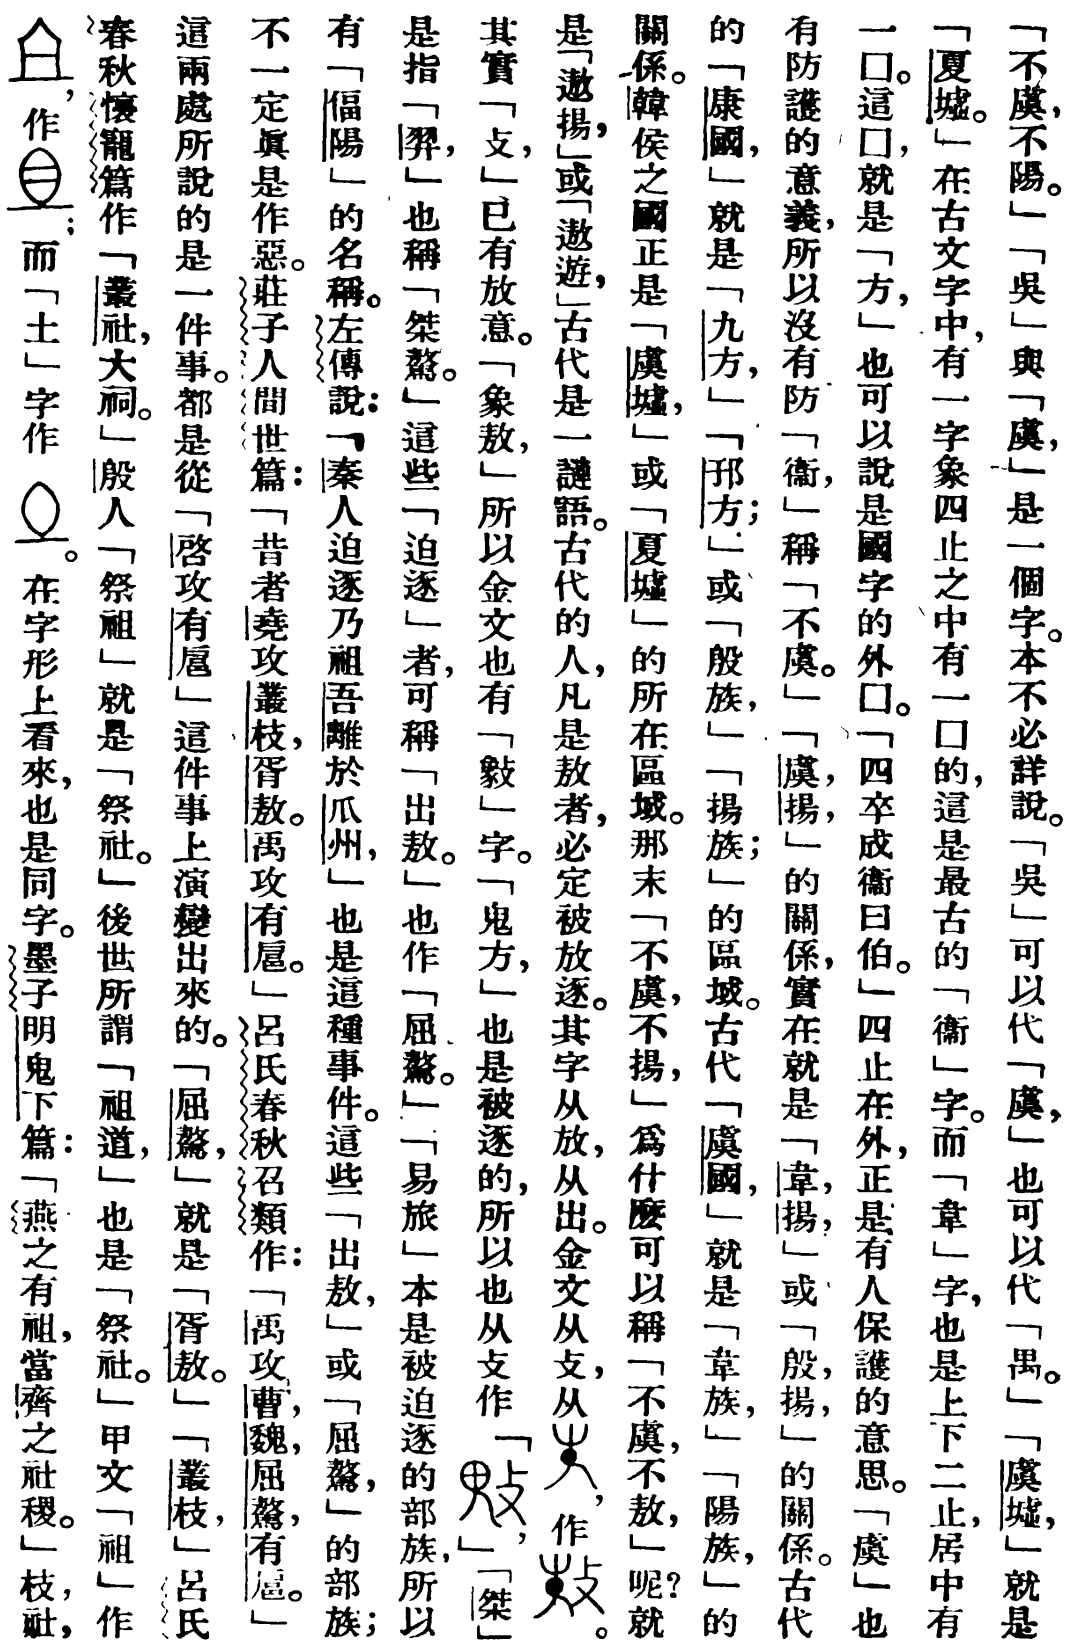 「不虞，不陽。」「吳」與「虞，」是一個字。本不必詳說。「吳」可以代「虞，」也可以代「禺。」「虞墟，」就是
「夏墟。」在古文字中，有一字象四止之中有一口的，這是最古的「衞」字。而「韋」字，也是上下二止，居中有
一囗。這囗，就是「方，」也可以說是國字的外囗。「四卒成衞曰伯。」四止在外，正是有人保護的意思。「虞」也
有防護的意義，所以沒有防「衞，」稱「不虞。」「虞，揚，」的關係，實在就是「韋，揚，」或「殷，揚，」的關係。古代
的「康國，」就是「九方，」「邘方；」或「殷族，」「揚族；」的區域。古代「虞國，」就是「韋族，」「陽族，」的
關係。韓侯之國正是「虞墟，」或「夏墟」的所在區域。那末「不虞，不揚，」爲什麽可以稱「不虞，不敖，」呢？就
是「遨揚，」或「遨遊，」古代是一謰語。古代的人，凡是敖者，必定被放逐。其字从放，从出。金文从攴，从，作。
其實「攴，」已有放意。「象敖，」所以金文也有「敤」字。「鬼方，」也是被逐的，所以也从攴作「」，「桀」
是指「羿，」也稱「桀驁。」這些「迫逐」者，可稱「出敖。」也作「屈驁。」「易旅」本是被迫逐的部族，所以
有「偪陽」的名稱。左傳說：「秦人迫逐乃祖吾離於瓜州，」也是這種事件。這些「出敖，」或「屈驁，」的部族；
不一定眞是作惡。莊子人間世篇：「昔者堯攻叢枝，胥敖。禹攻有扈。」呂氏春秋召類作：「禹攻曹，魏，屈驁，有扈。」
這兩處所說的是一件事。都是從「啓攻有扈」這件事上演變出來的。「屈驁，」就是「胥敖。」「叢枝，」呂氏
春秋懷寵篇作「叢社，大祠。」殷人「祭祖」就是「祭社。」後世所謂「祖道，」也是「祭社。」甲文「祖」作
，作；而「土」字作。在字形上看來，也是同字。墨子明鬼下篇：「燕之有祖，當齊之社稷。」枝，社，